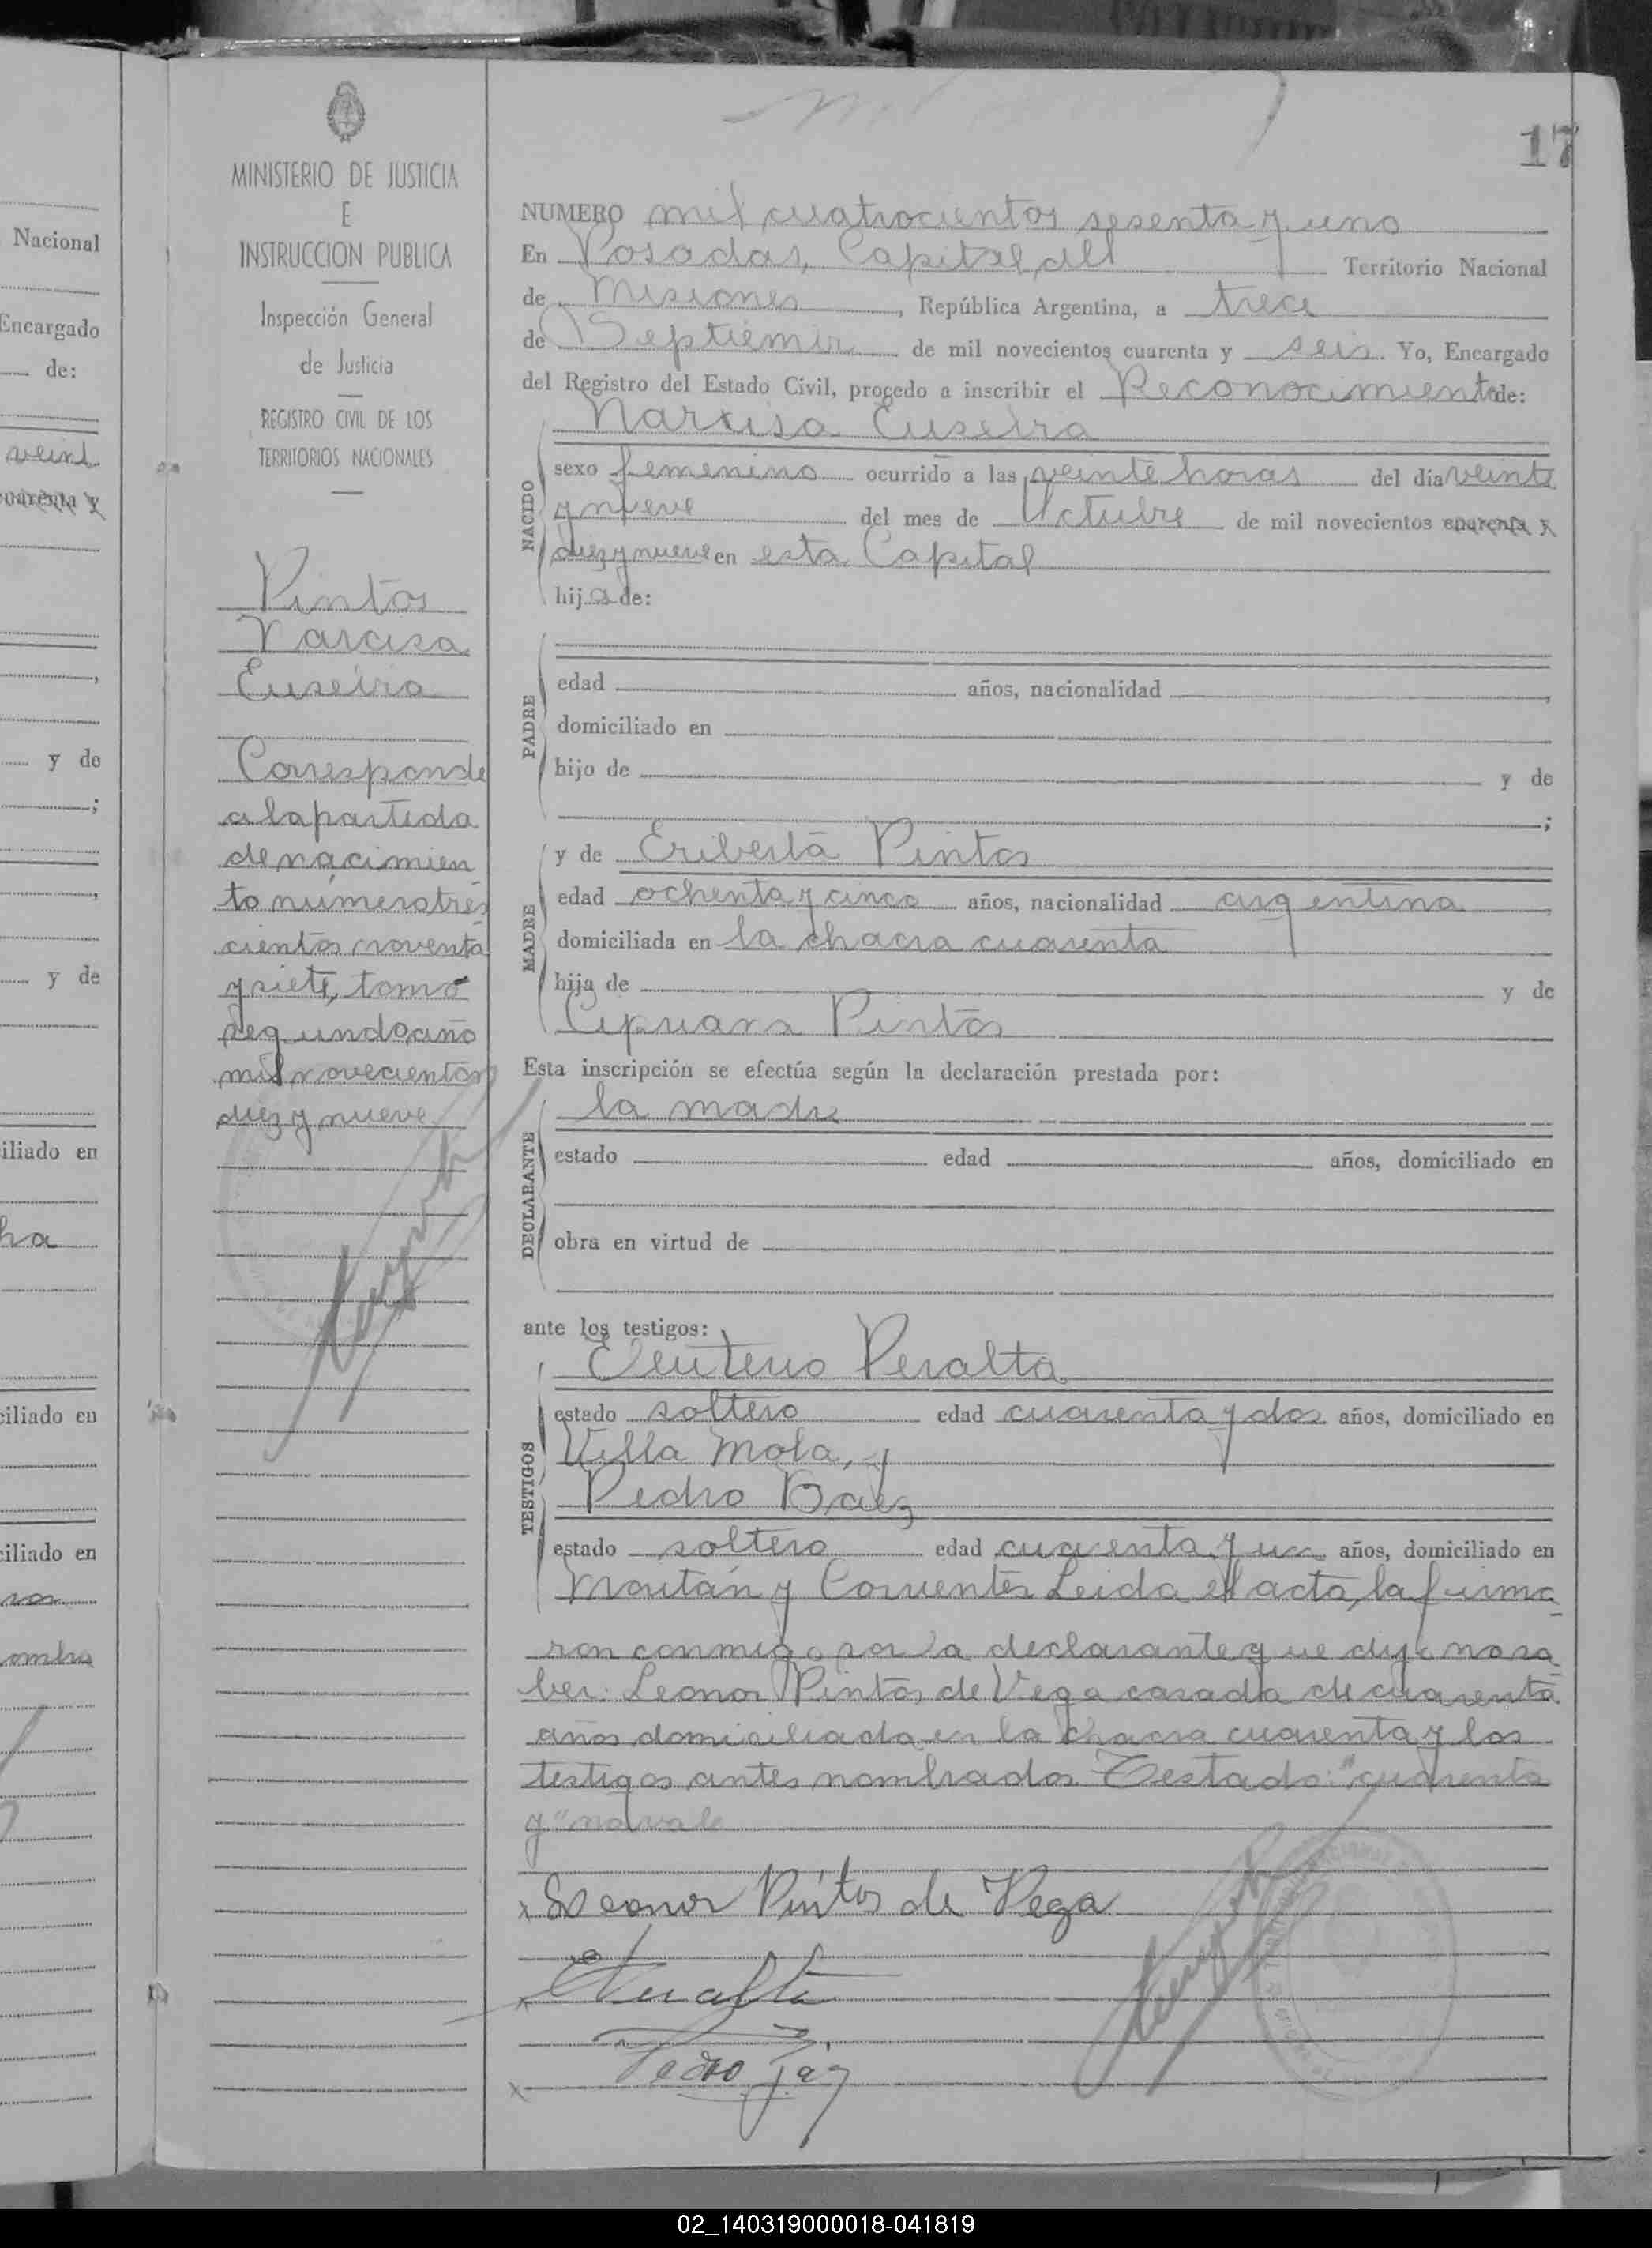 Nacional
Encargado
de:
veint
cuarenta y
y de
;
y de
iliado en
ha
ciliado en
ciliado en
MINISTERIO DE JUSTICIA
E
INSTRUCCION PUBLICA
Inspección General
de Justicia
REGISTRO CIVIL DE LOS
TERRITORIOS NACIONALES
Pintos
Narcisa
Euseira
Corresponde
a la partida
de nacimien
to número tres
cientos noventa
y siete, tomo
segundo, año
mil novecientos
diez y nueve
17
NUMERO mil cuatrocientos sesenta y uno
En Posadas, Capital del Territorio Nacional
de Misiones, República Argentina, a trece
de Septiembre de mil novecientos cuarenta y seis. Yo, Encargado
del Registro del Estado Civil, procedo a inscribir el Reconocimiento de:
Narcisa Euseira
NACIDO
sexo femenino ocurrido a las veinte horas del día veinte
y nueve del mes de Octubre de mil novecientos cuarenta y
diez y nueve en esta Capital
hija de:
PADRE
edad años, nacionalidad ,
domiciliado en
hijo de y de
;
MADRE
y de Eriberta Pintos
edad ochenta y cinco años, nacionalidad argentina ,
domiciliada en la chacra cuarenta
hija de y de
Cipriana Pintos
Esta inscripción se efectúa según la declaración prestada por:
DECLARANTE
la madre
estado edad años, domiciliado en
obra en virtud de
ante los testigos:
TESTIGOS
Eleuterio Peralta
estado soltero edad cuarenta y dos años, domiciliado en
Villa Mola, y
Pedro Baez
estado soltero edad cuarenta y un años, domiciliado en
Maitán y Corrientes Leida el acta, la firma
ron conmigo por la declarante que dijo no sa
ber: Leonor Pintos de Vega casada de cuarenta
años domiciliada en la chacra cuarenta y los
testigos antes nombrados Testado: "cuarenta
y" no vale
x Leonor Pintos de Vega
x EPeralta
x Pedro Baez
02_140319000018-041819